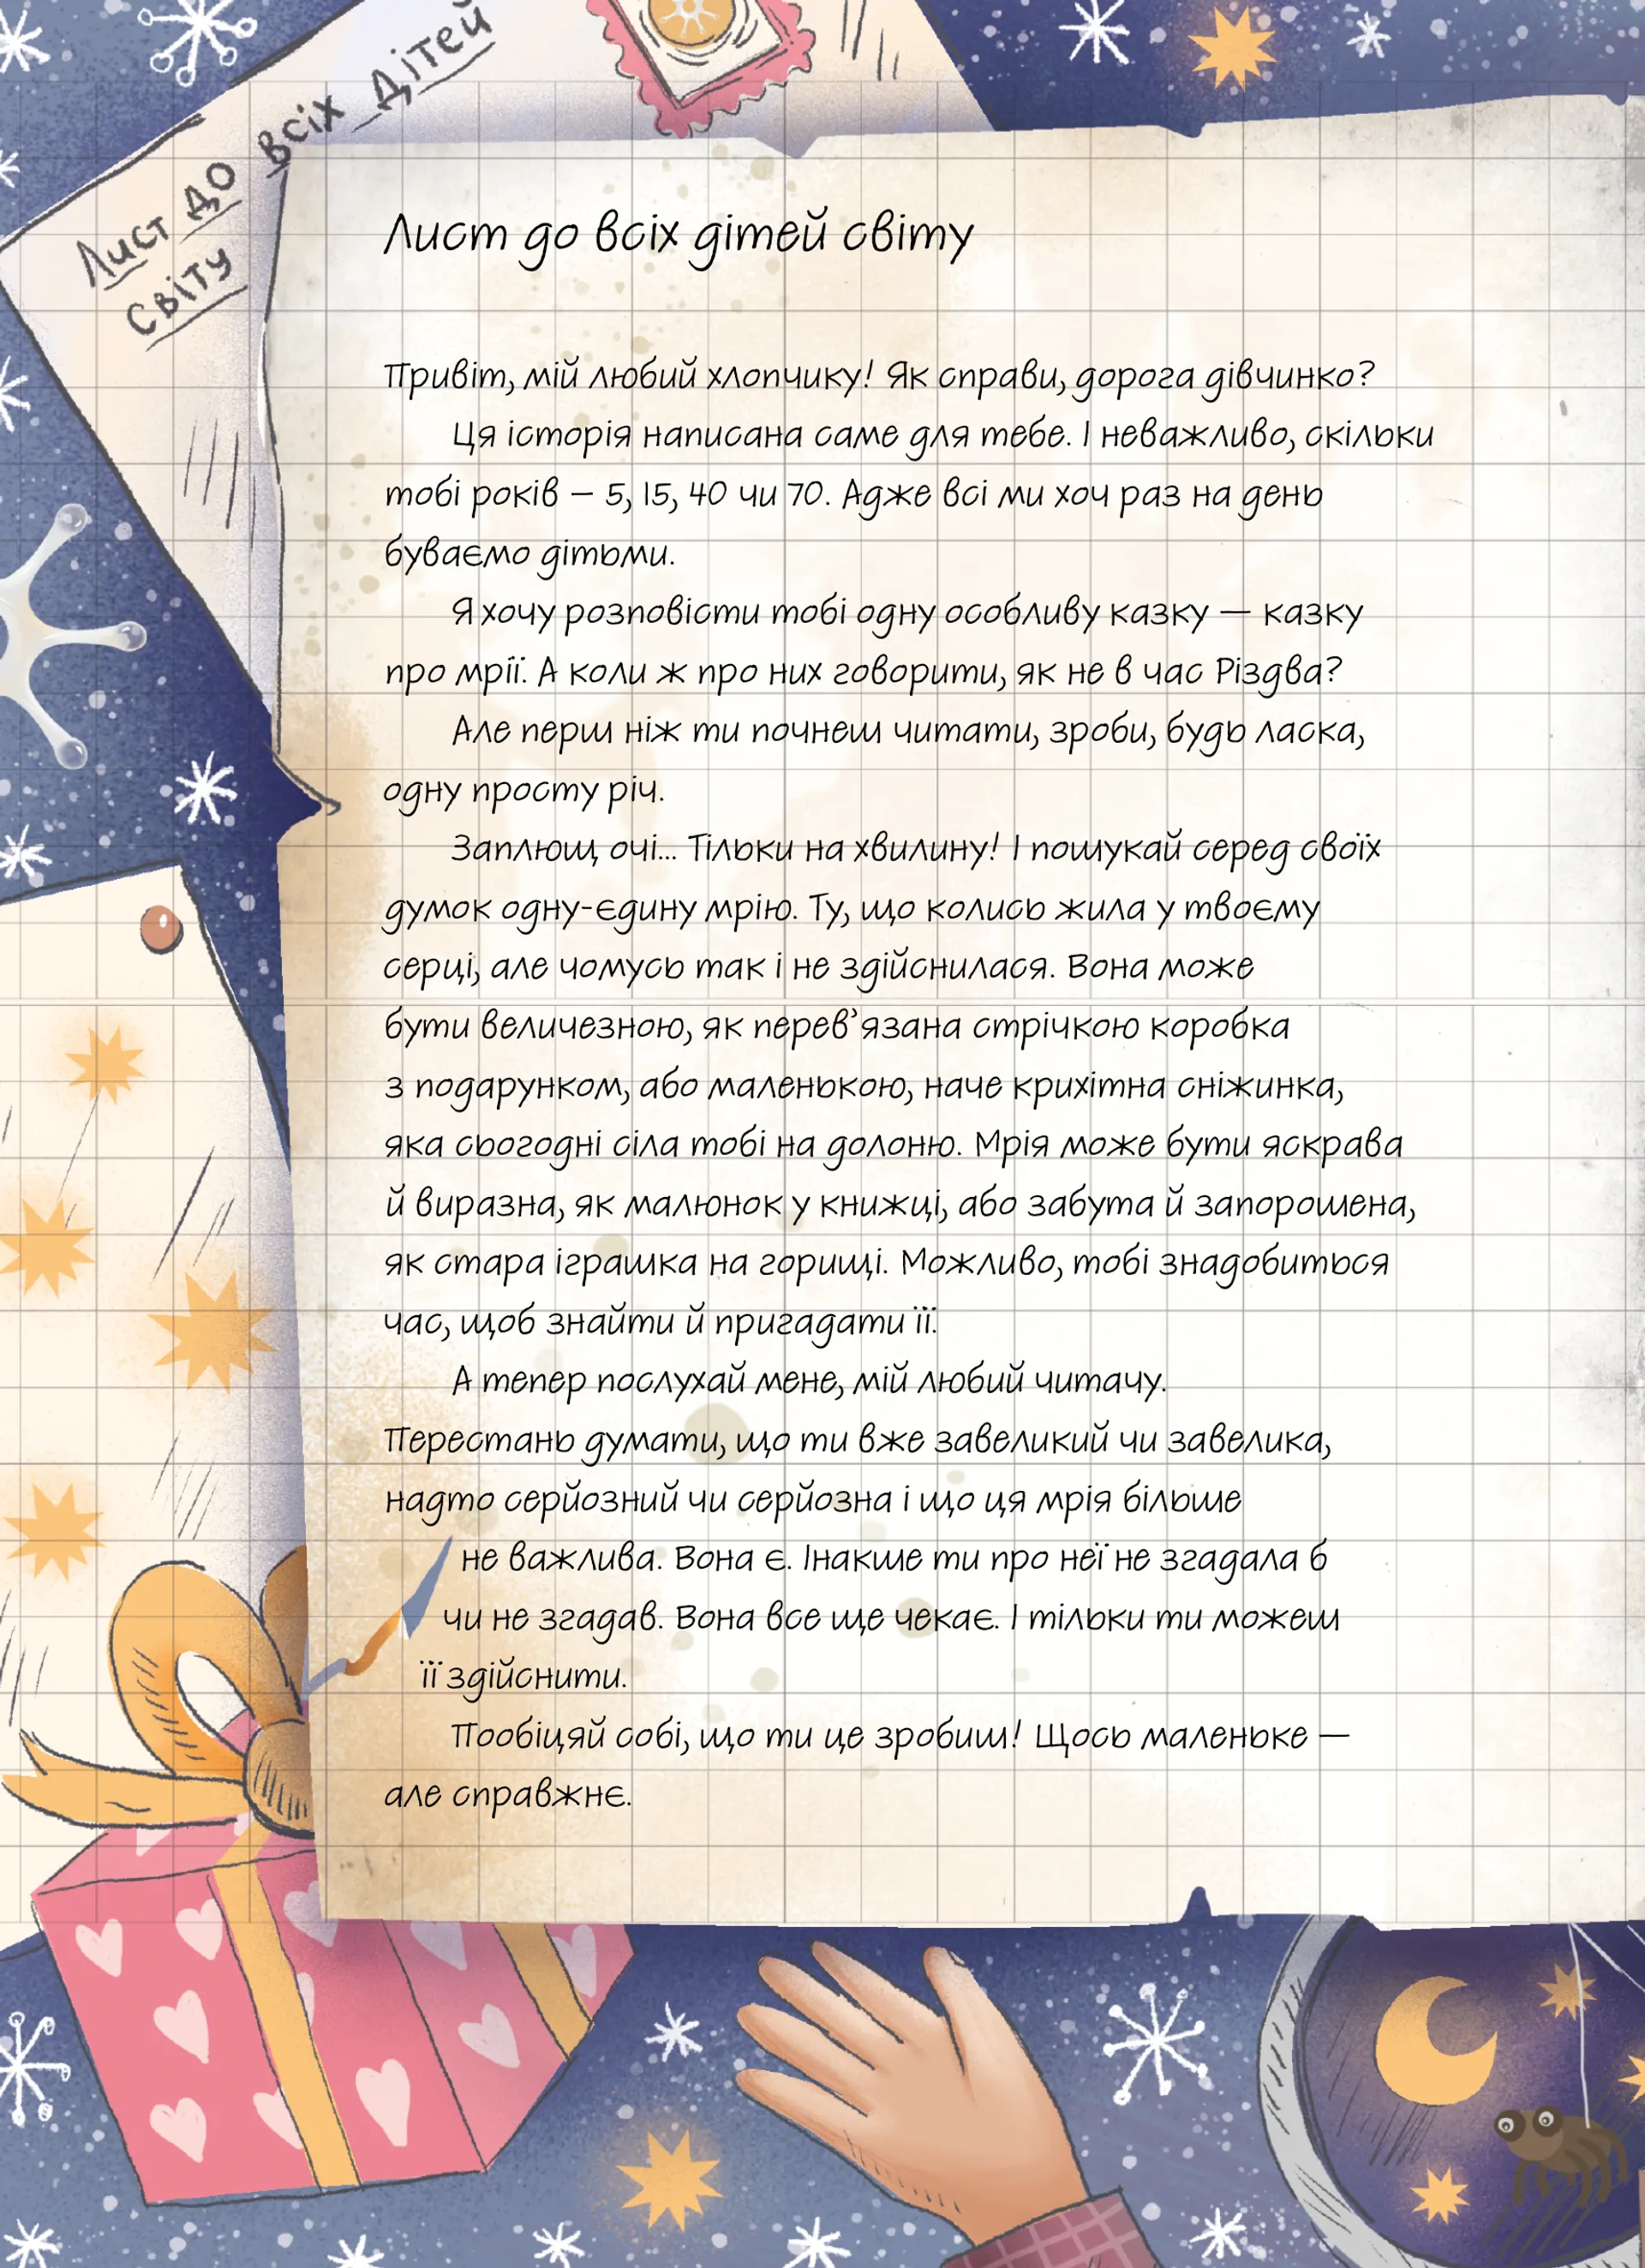 Лист до всіх дітей
світу
Лист до всіх дітей світу
Привіт, мій любий хлопчику! Як справи, дорога дівчинко?
Ця історія написана саме для тебе. І неважливо, скільки
тобі років – 5, 15, 40 чи 70. Адже всі ми хоч раз на день
буваємо дітьми.
Я хочу розповісти тобі одну особливу казку — казку
про мрії. А коли ж про них говорити, як не в час Різдва?
Але перш ніж ти почнеш читати, зроби, будь ласка,
одну просту річ.
Заплющ очі... Тільки на хвилину! І пошукай серед своїх
думок одну-єдину мрію. Ту, що колись жила у твоєму
серці, але чомусь так і не здійснилася. Вона може
бути величезною, як перев’язана стрічкою коробка
з подарунком, або маленькою, наче крихітна сніжинка,
яка сьогодні сіла тобі на долоню. Мрія може бути яскрава
й виразна, як малюнок у книжці, або забута й запорошена,
як стара іграшка на горищі. Можливо, тобі знадобиться
час, щоб знайти й пригадати її.
А тепер послухай мене, мій любий читачу.
Перестань думати, що ти вже завеликий чи завелика,
надто серйозний чи серйозна і що ця мрія більше
не важлива. Вона є. Інакше ти про неї не згадала б
чи не згадав. Вона все ще чекає. І тільки ти можеш
її здійснити.
Пообіцяй собі, що ти це зробиш! Щось маленьке —
але справжнє.